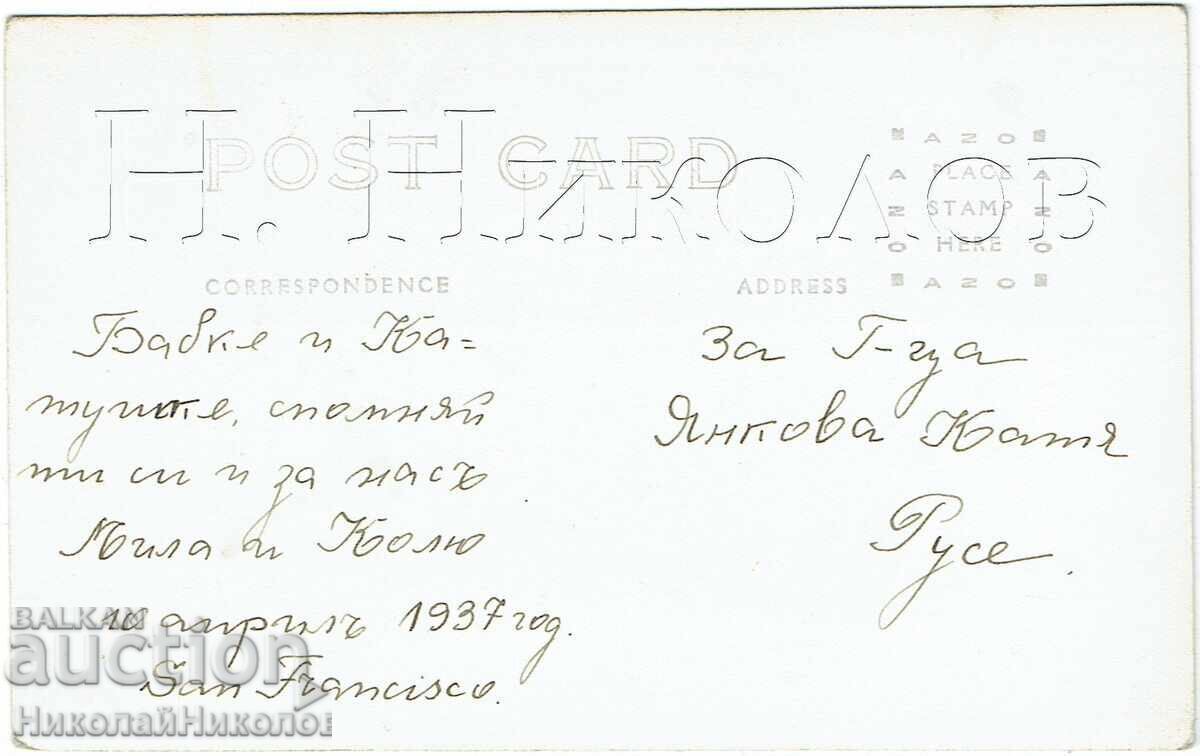 Н. Николов
POST CARD
AZO
PLACE
STAMP
HERE
AZO
AZO
AZO
CORRESPONDENCE
ADDRESS
Бабке и Ка=
тушке, спомняй
ти си и за насъ
Мила и Колю
10 априлъ 1937 год.
San Francisco.
За Г-ца
Янкова Катя
Русе.
BALKAN
auction
НиколайНиколов